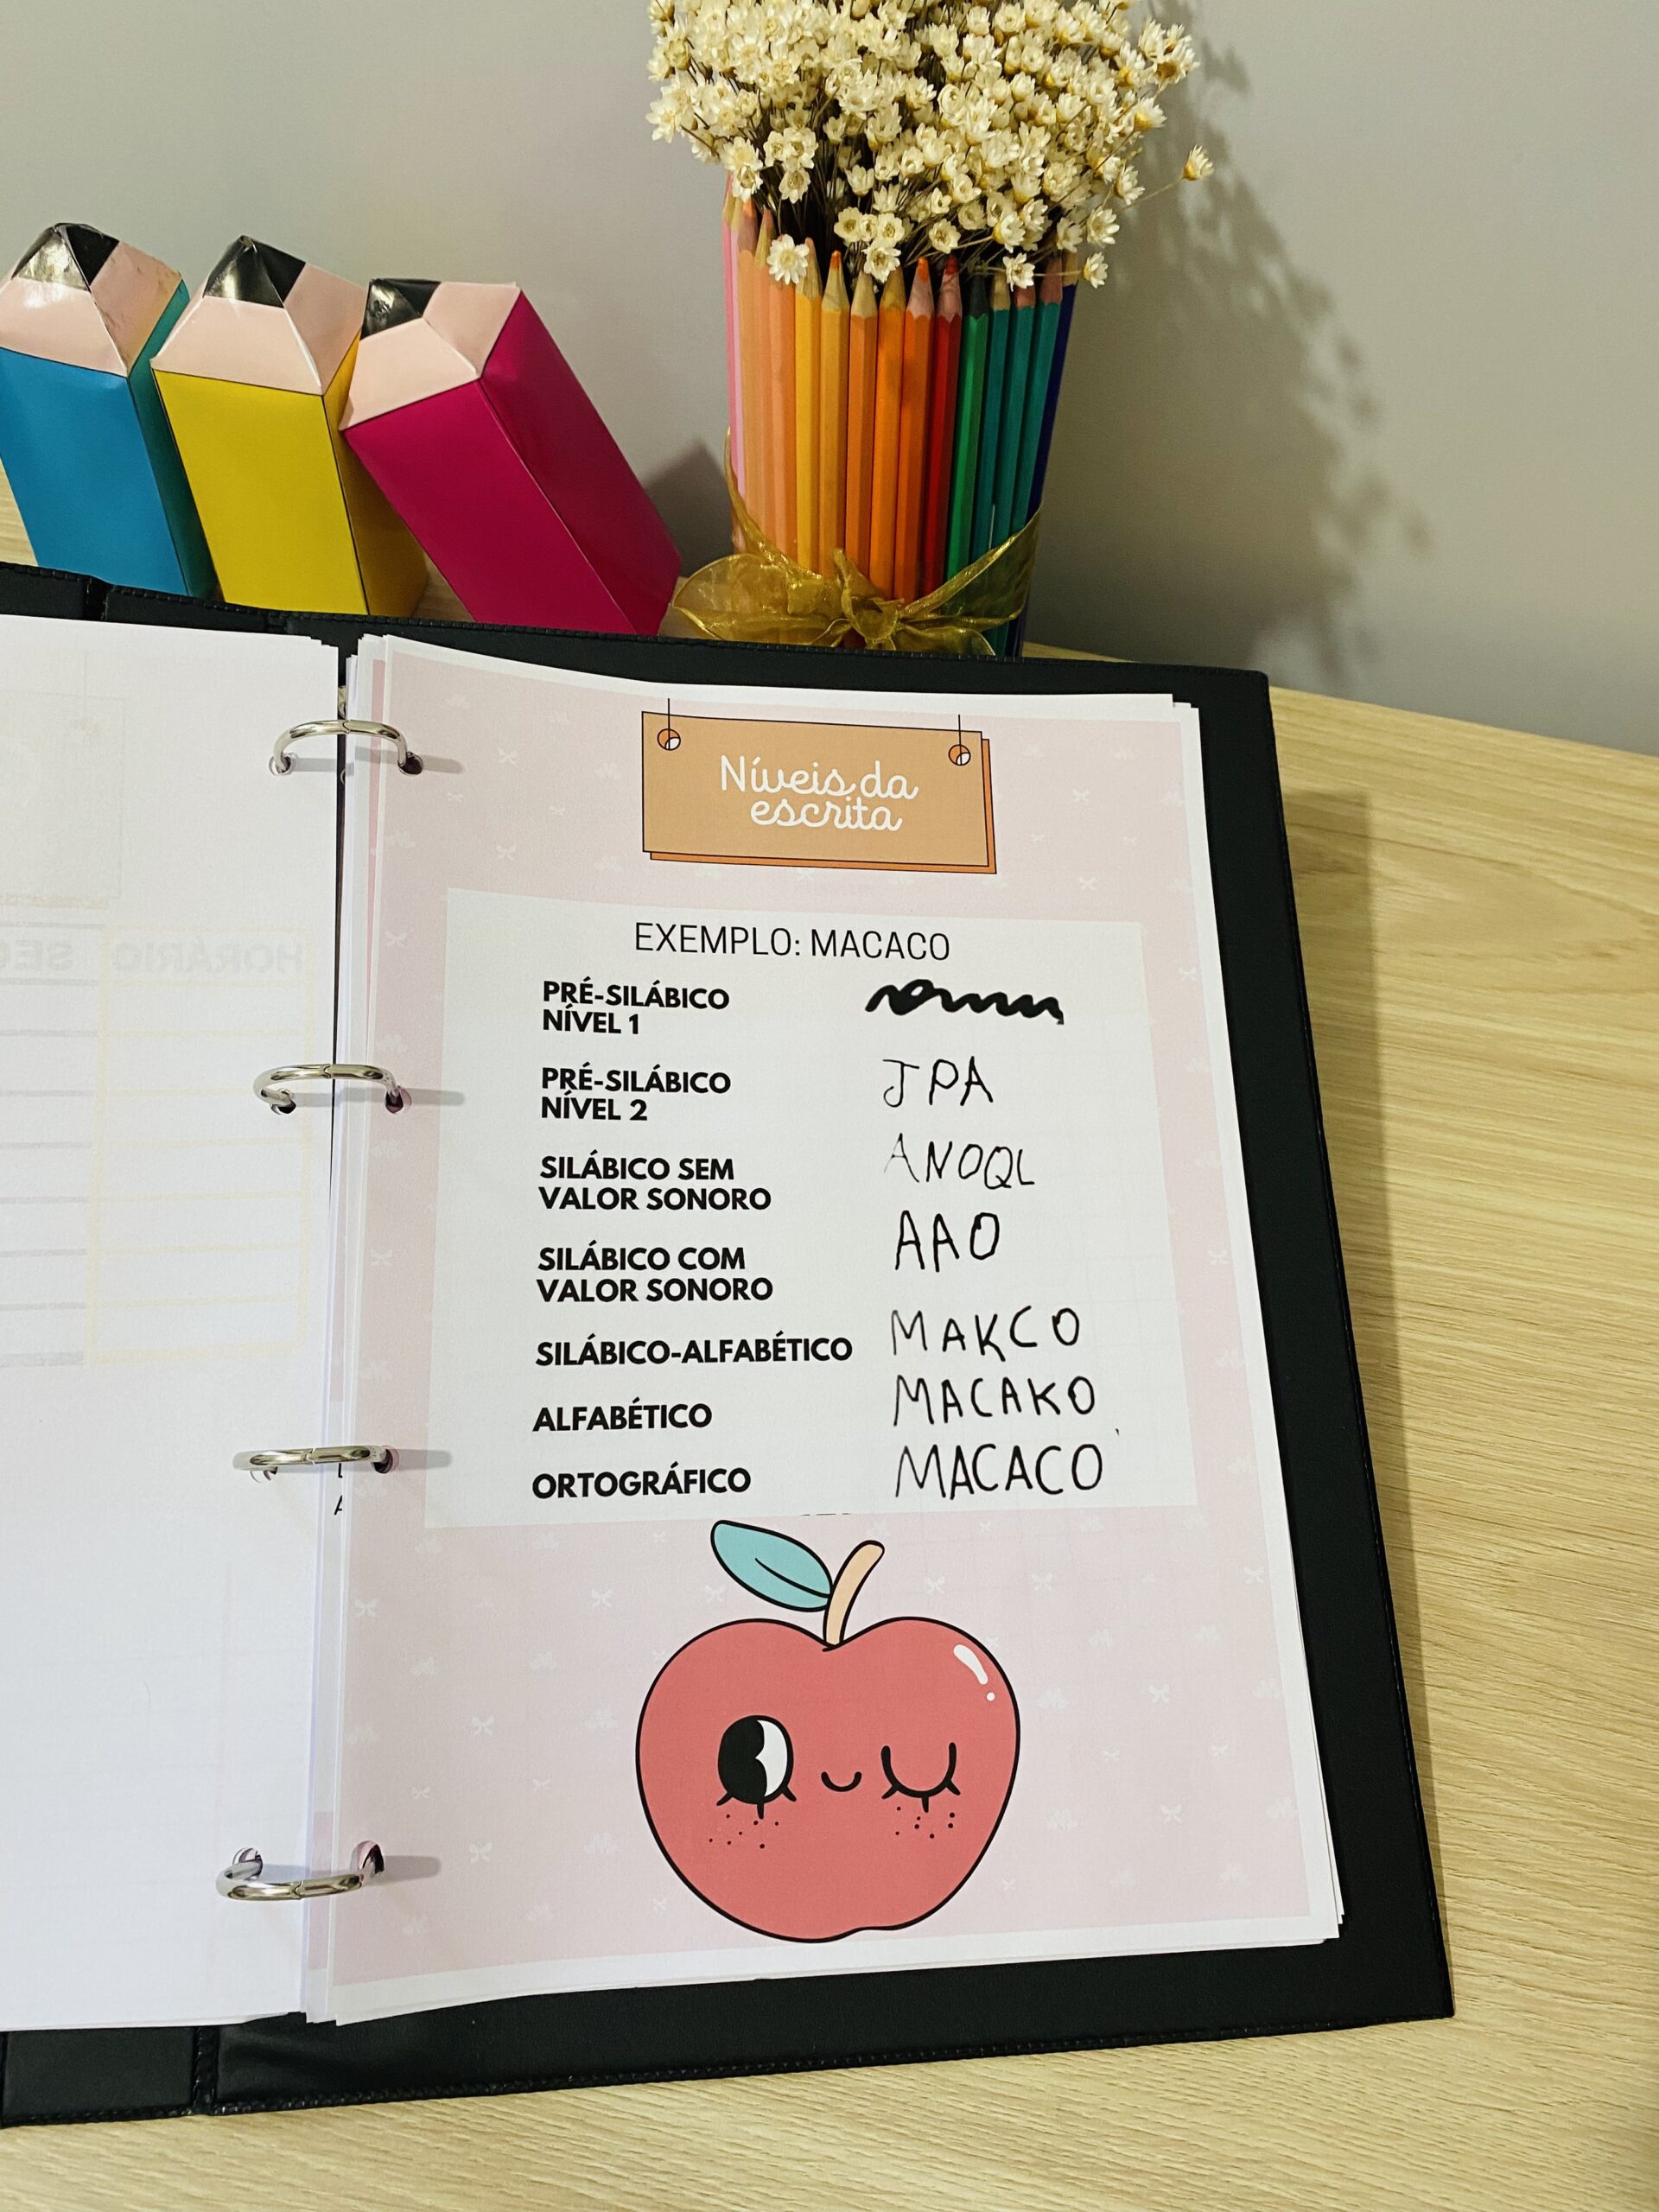 Níveis da
escrita
EXEMPLO: MACACO
PRÉ-SILÁBICO
NÍVEL 1
PRÉ-SILÁBICO
NÍVEL 2
JPA
SILÁBICO SEM
VALOR SONORO
ANOQL
SILÁBICO COM
VALOR SONORO
AAO
SILÁBICO-ALFABÉTICO
MAKCO
ALFABÉTICO
MACAKO
ORTOGRÁFICO
MACACO
HORÁRIO SEG